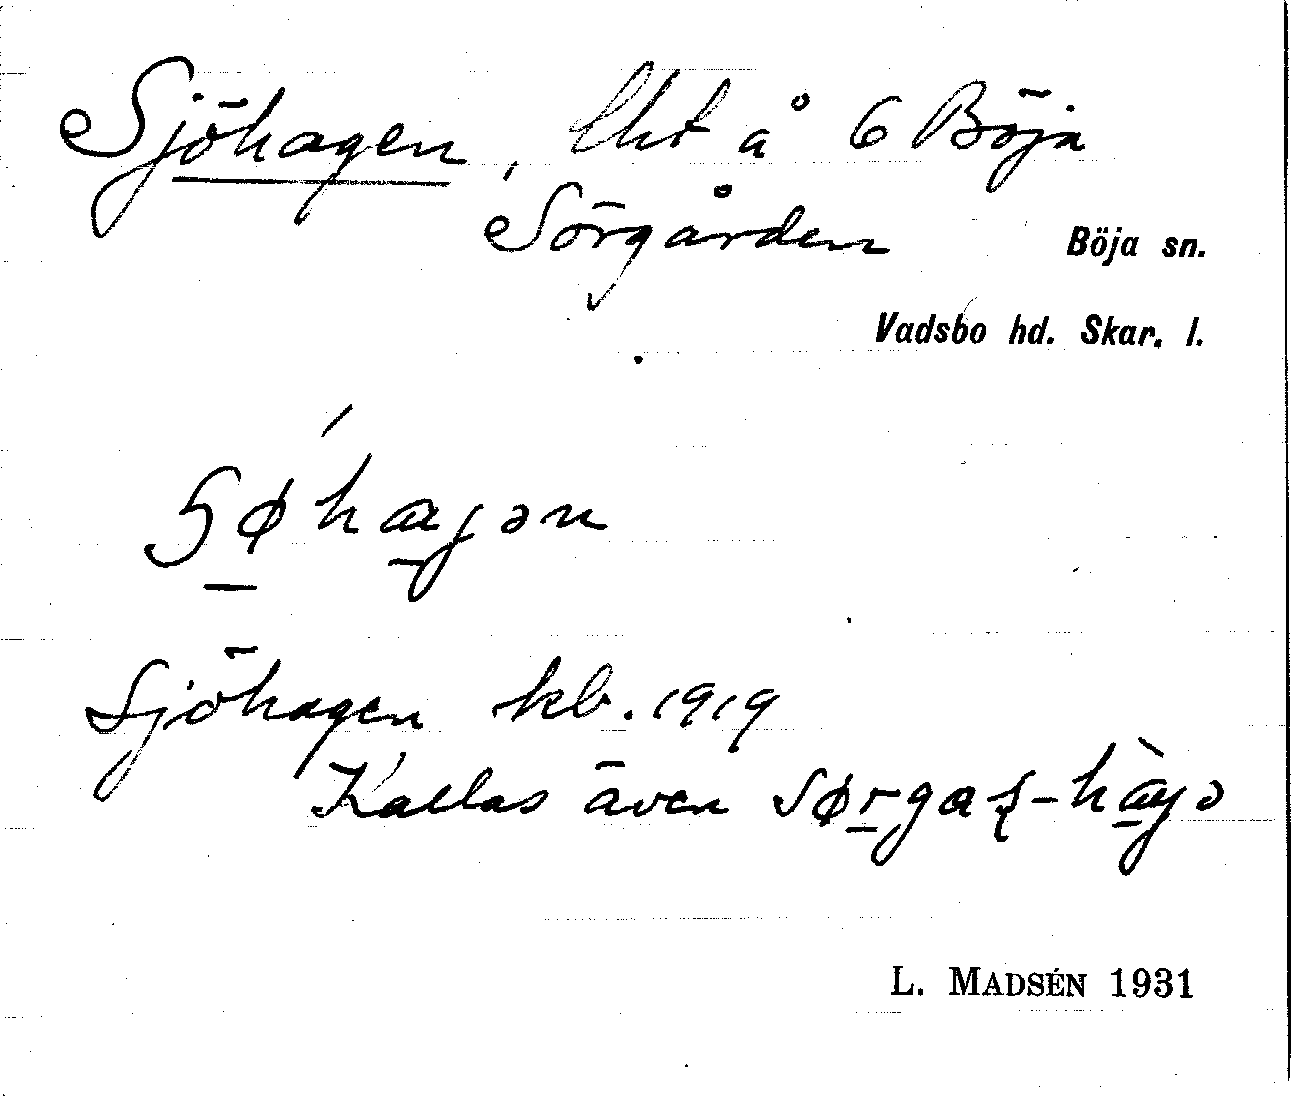 Sjöhagen, lht å 6 Böja
Sörgården
Böja sn.
Vadsbo hd. Skar. l.
Sjöhagen kb. 1919
Kallas även
L. MADSÉN 1931